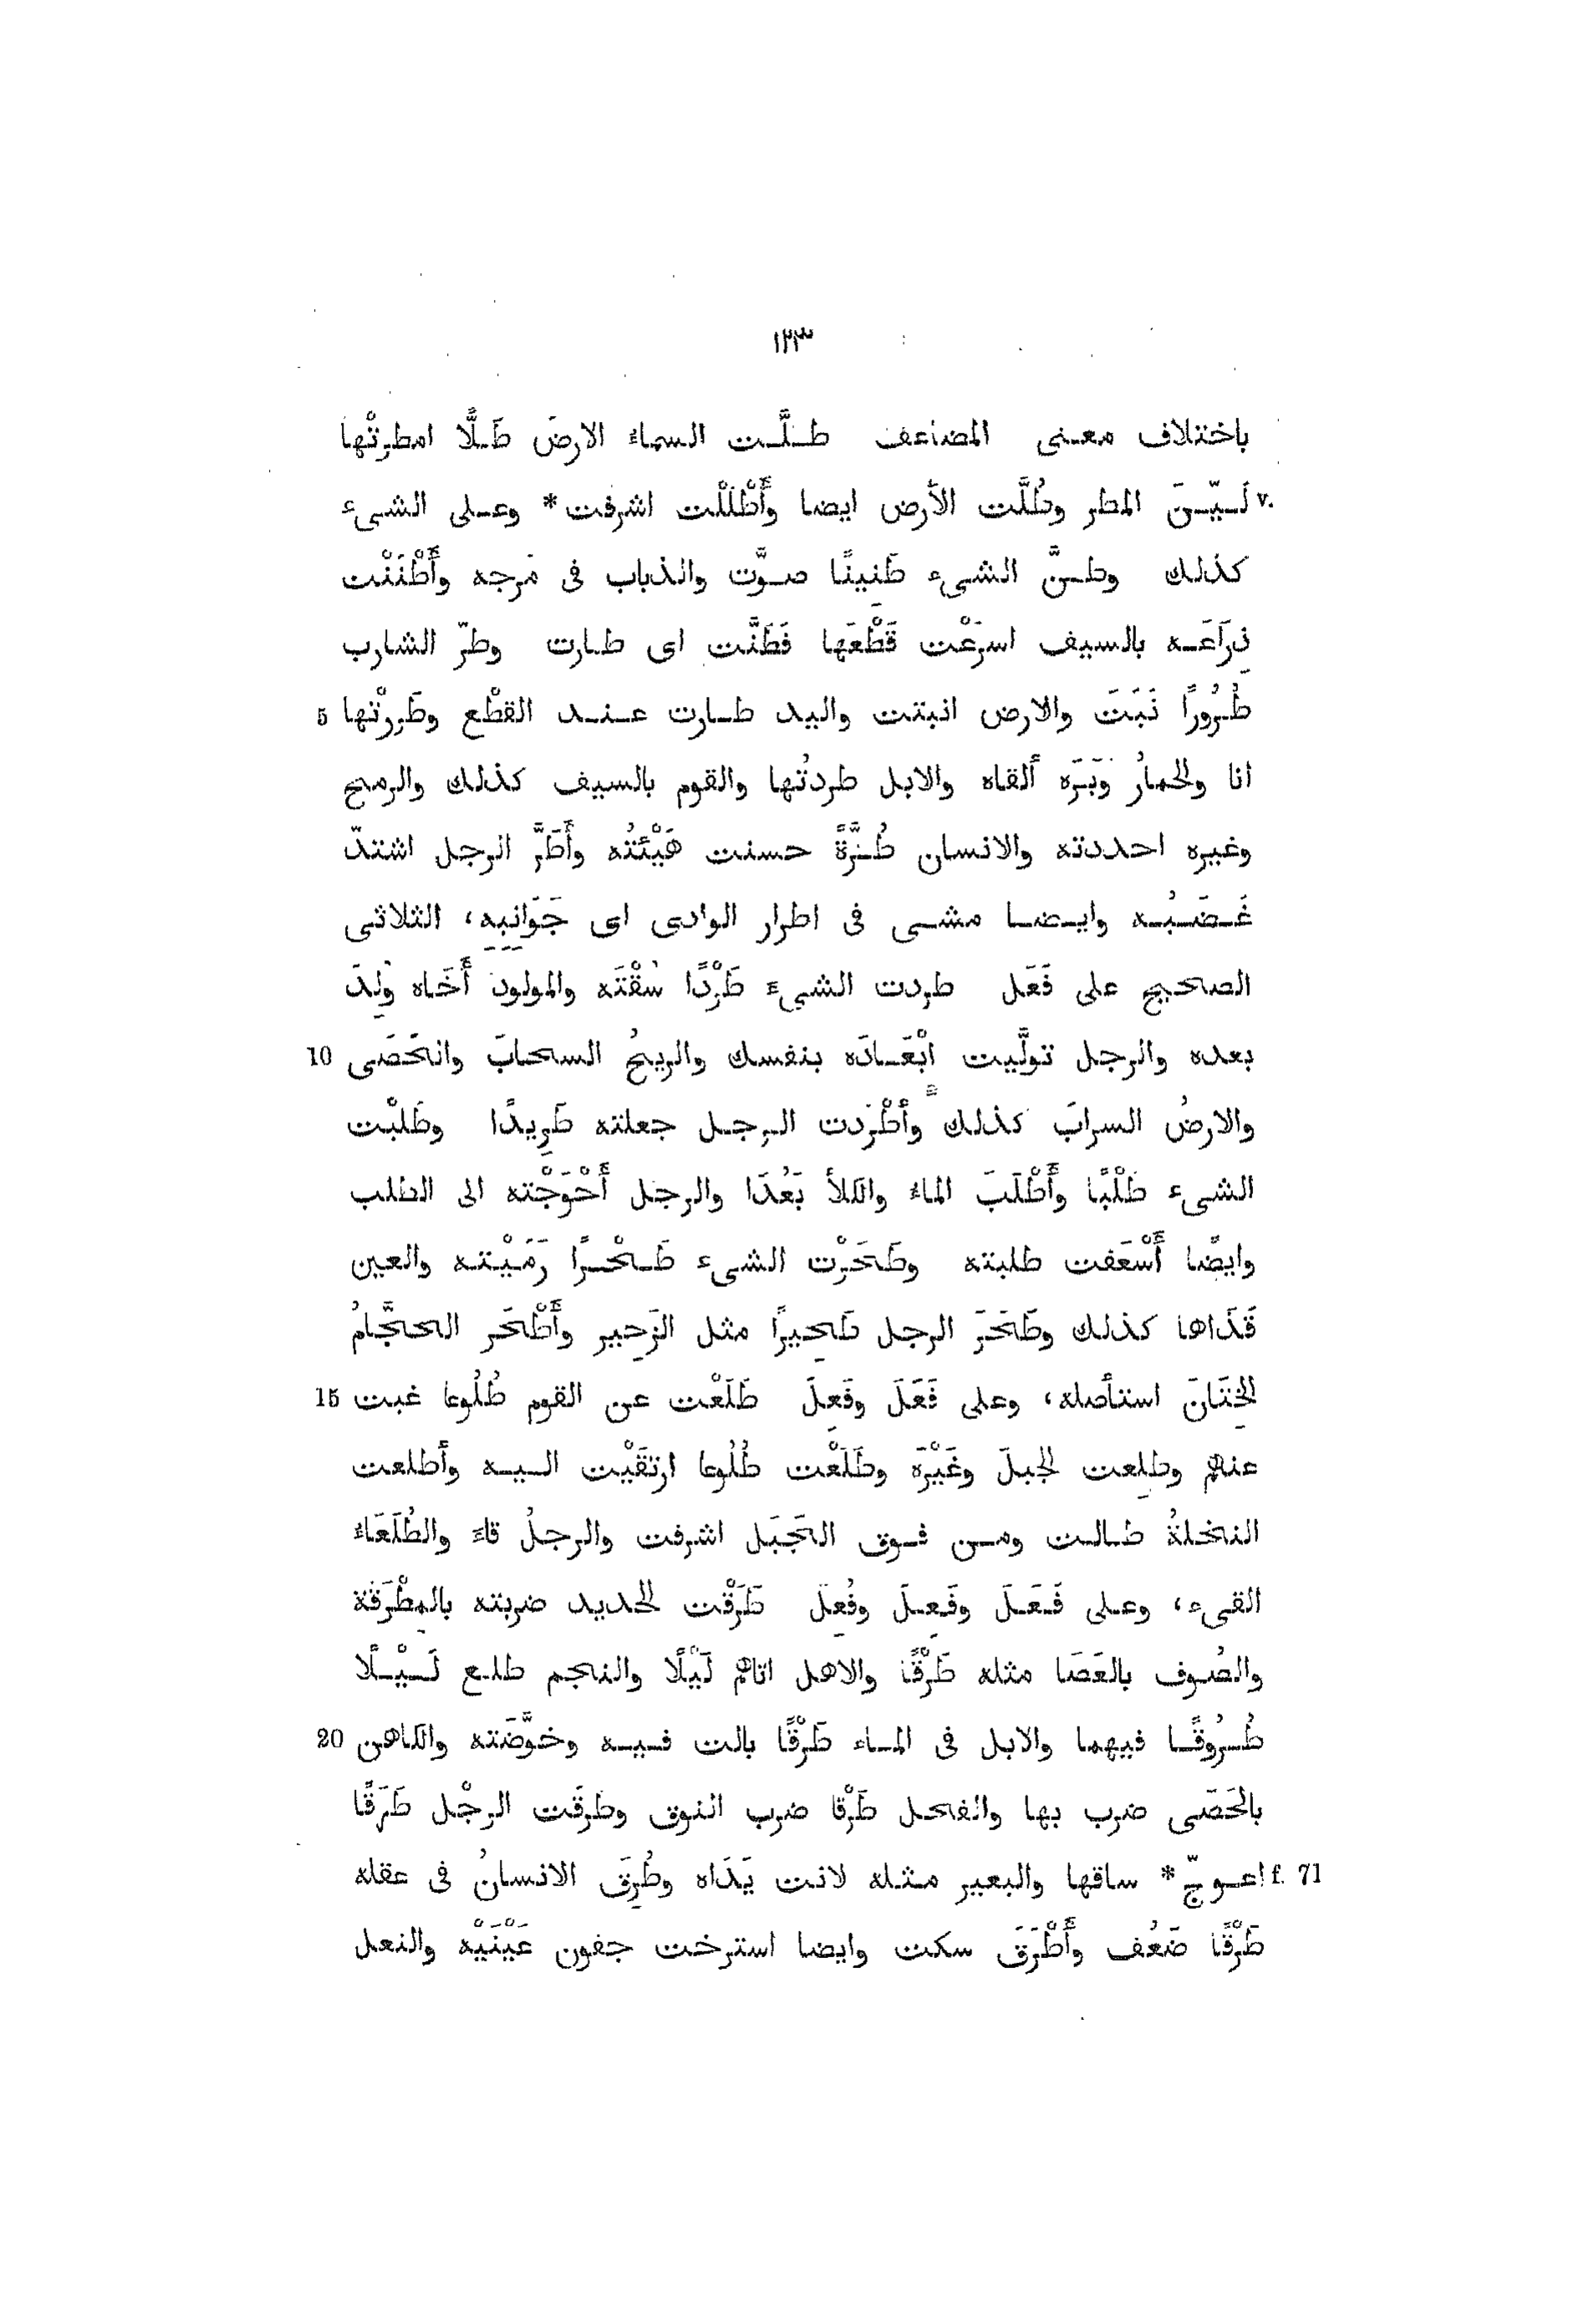 ١٢٣
باختلاف معنى المضاعف طلَّت السماءُ الارضَ طَلًّا امطرتْها
v. لَيِّنَ المطر وطُلَّت الأرض ايضا وأَطْلَلْت اشرفت* وعلى الشىء
كذلك وطنَّ الشىء طَنِينًا صوَّت والذباب فى مَرجه وأَطْنَنْت
ذِرَاعَه بالسيف اسرَعْت قَطْعَها فَطَنَّت اى طارت وطرّ الشارب
5 طُرُورًا نَبَتَ والارض انبتت واليد طارت عند القطْع وطَرِرْتها
انا والحمارُ وَبَرَه ألقاه والابل طردتُها والقوم بالسيف كذلك والرمح
وغيره احددته والانسان طُرَّةً حسنت هَيْئَتُه وأَطَرَّ الرجل اشتدّ
غَضَبُه وايضا مشى فى اطرار الوادى اى جَوَانِبِه، الثلاثى
الصحيح على فَعَل طردت الشيءَ طَرْدًا سُقْتَه والمولودَ أَخَاه وُلِدَ
10 بعده والرجل تولَّيت ابْعَادَه بنفسك والريحُ السحابَ والحَصَى
والارضُ السرابَ كذلك وأطْرَدت الرجل جعلته طَرِيدًا وطَلبْت
الشىء طَلْبًا وأَطْلَبَ الماءُ والكلأ بَعُدَا والرجل أَحْوَجْته الى الطلب
وايضًا أَسْعَفت طلبته وطَحَرْت الشىء طَحْرًا رَمَيْته والعين
قَذَاها كذلك وطَحَرَ الرجل طَحِيرًا مثل الزَحِير وأَطْحَر الحجَّامُ
15 الخِتَانَ استأصله، وعلى فَعَلَ وفَعِلَ طَلَعْت عن القوم طُلُوعا غبت
عنهم وطلِعت الجبلَ وغَيْرَه وطَلَعْت طُلُوعا ارتقَيْت اليه وأطلعت
النخلةُ طالت ومن فوق الجَبَل اشرفت والرجلُ قاءَ والطُلَعَاءُ
القىء، وعلى فَعَلَ وفَعِلَ وفُعِلَ طَرَقْت الحديد ضربته بالمِطْرَقة
والصُوف بالعَصَا مثله طَرْقًا والاهل اتاهم لَيْلًا والنجم طلع لَيْلًا
20 طُرُوقًا فيهما والابل فى الماء طَرْقًا بالت فيه وخوَّضَته والكاهن
بالحَصَى ضرب بها والفحل طَرْقا ضرب النوق وطرقَت الرجْل طَرَقًا
f. 71 اعوجّ* ساقها والبعير مثله لانت يَدَاه وطُرِقَ الانسانُ فى عقله
طَرْقًا ضَعُف وأَطْرَقَ سكت وايضا استرخت جفون عَيْنَيْه والنعل